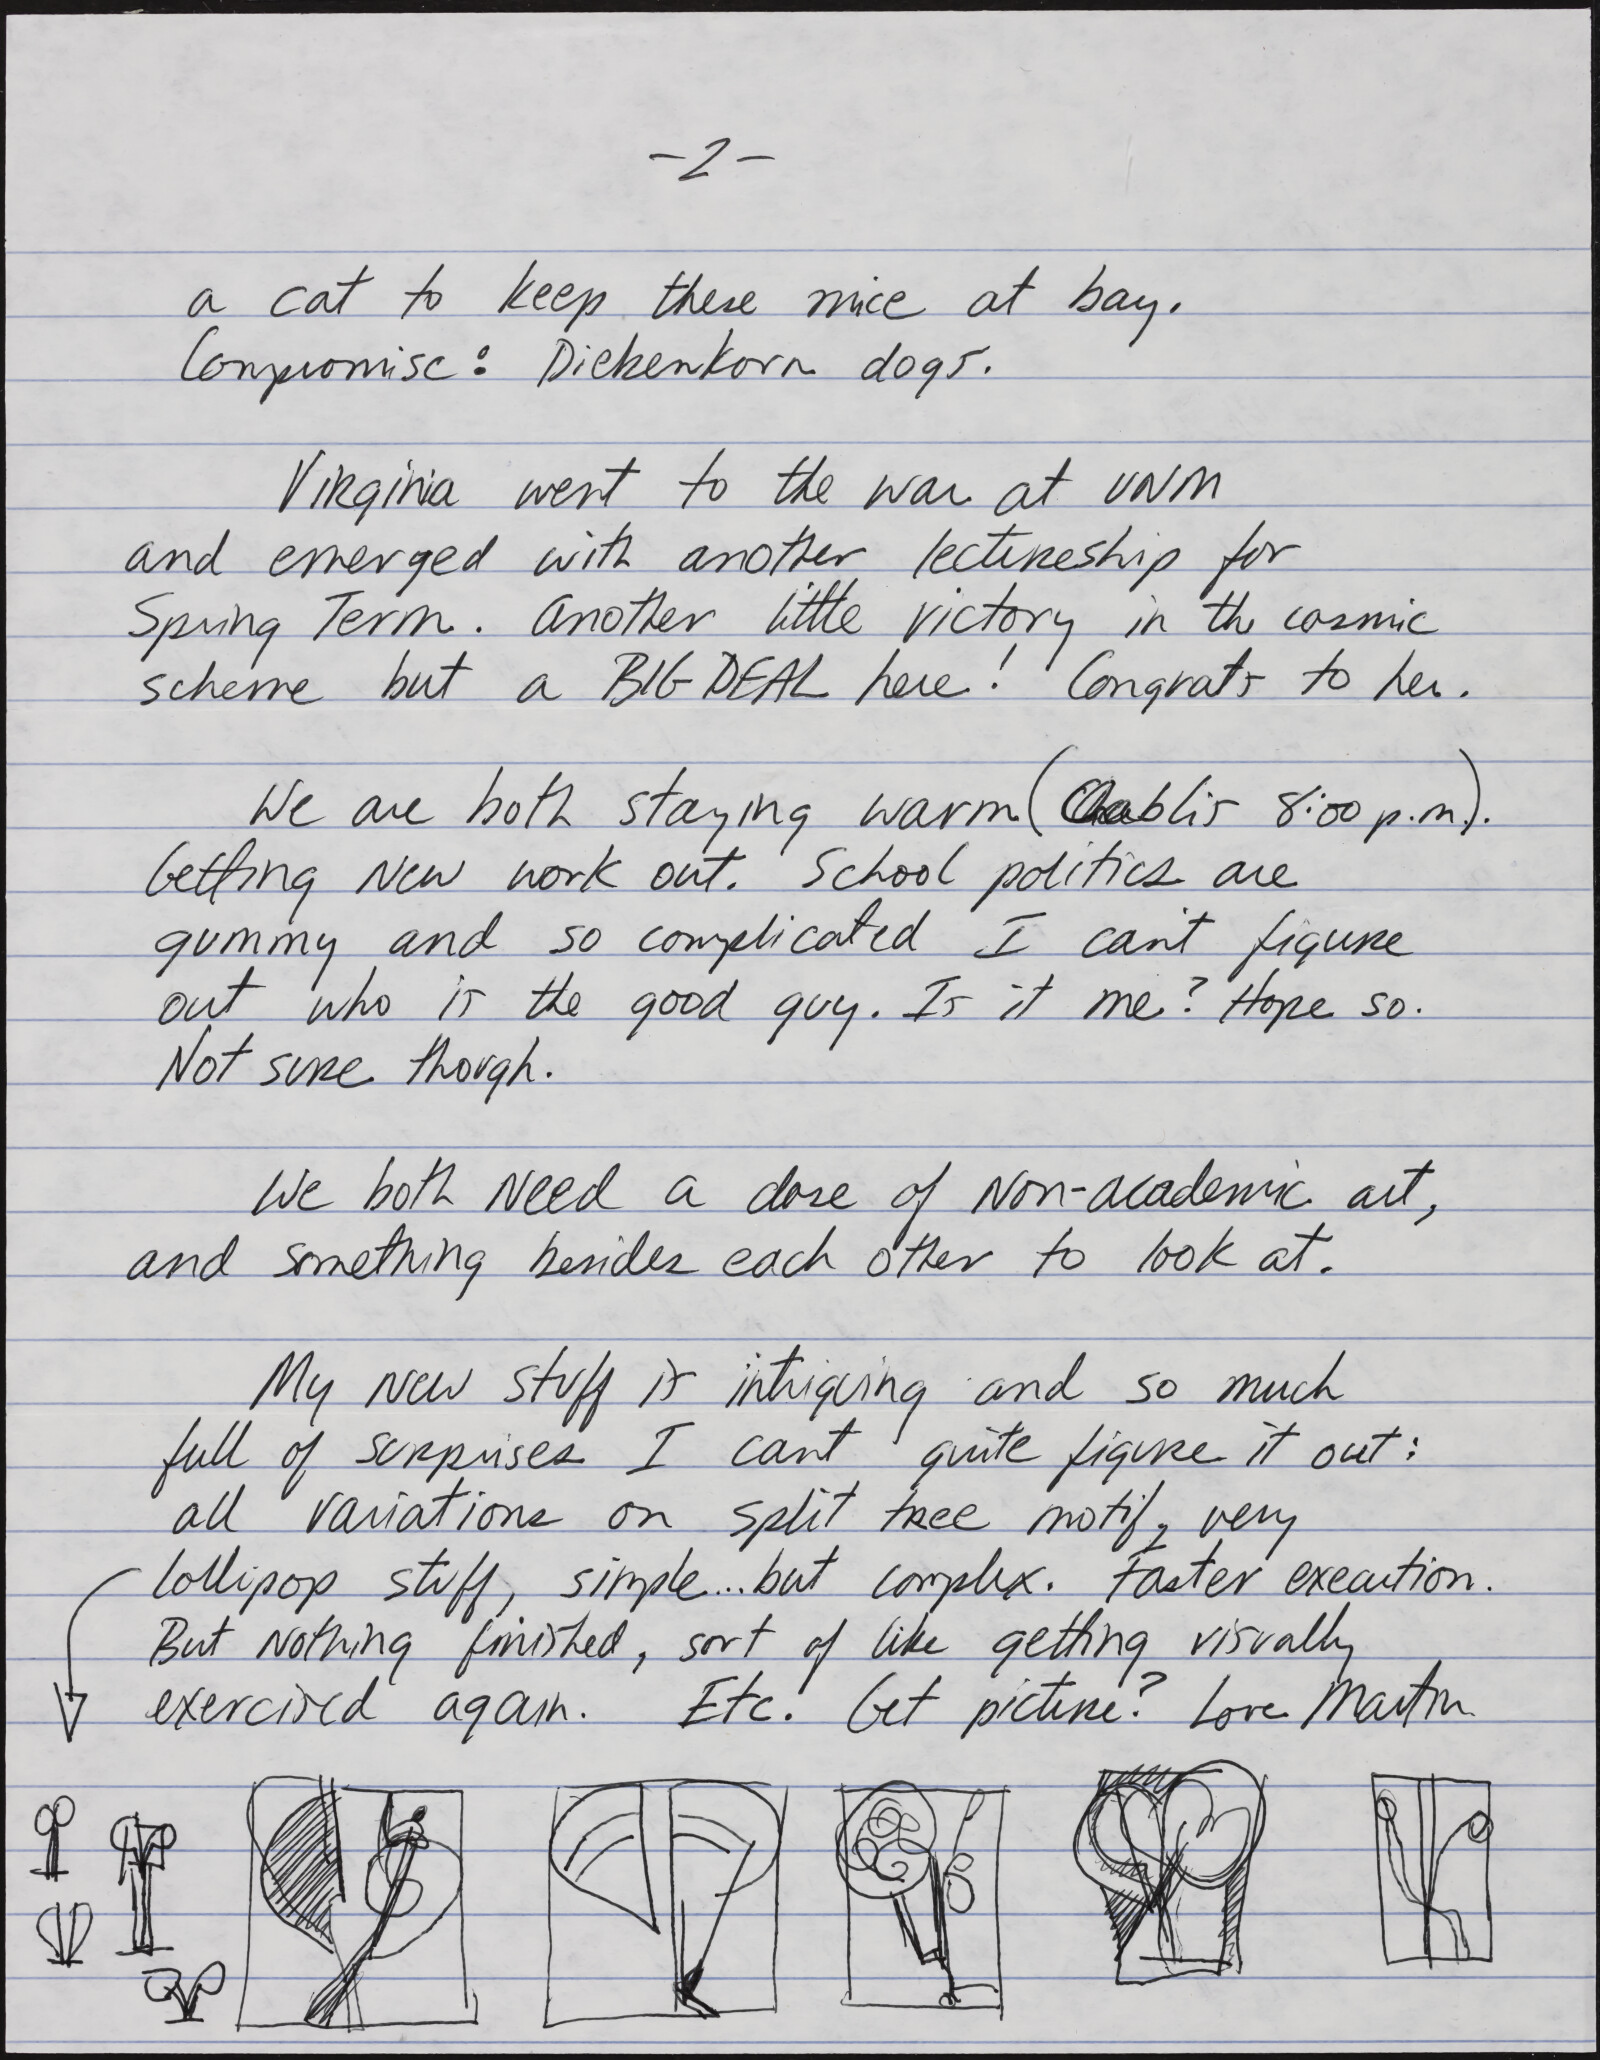 -2-
a cat to keep these mice at bay.
Compromise: Diekenkorn dogs.
Virginia went to the war at UNM
and emerged with another lectureship for
Spring Term. Another little victory in the cosmic
scheme but a BIG DEAL here! Congrats to her.
We are both staying warm (Chablis 8:00 p.m.).
Getting new work out. School politics are
gummy and so complicated I can't figure
out who is the good guy. Is it me? Hope so.
Not sure though.
We both need a dose of non-academic art,
and something besides each other to look at.
My new stuff is intriguing and so much
full of surprises I can't quite figure it out:
all variations on split tree motif, very
lollipop stuff, simple...but complex. Faster execution.
But nothing finished, sort of like getting visually
exercised again. Etc. Get picture? Love Martin